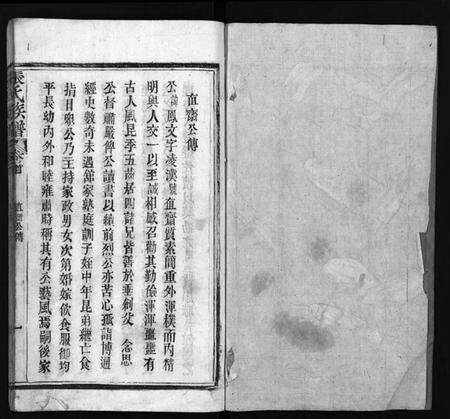 直齋公傳
公諱鳳文字凌漢號直齋質素簡重外樸而內精
明與人交一以至誠相感召勸其勤儉渾渾噩噩有
古人風昆季五齒居四諸兄皆善於垂創父 念思
公督肅嚴俾公讀書以續前烈公亦苦心孤詣博通
經史數奇未遇節家塾庭訓子姪中年昆弟繼亡食
指日繁公乃主持家政男女次第婚嫁飲食服御均
平長幼內外和睦雍肅時稱其有公藝風焉嗣後家
張氏族譜
卷首
直齋公傳
一